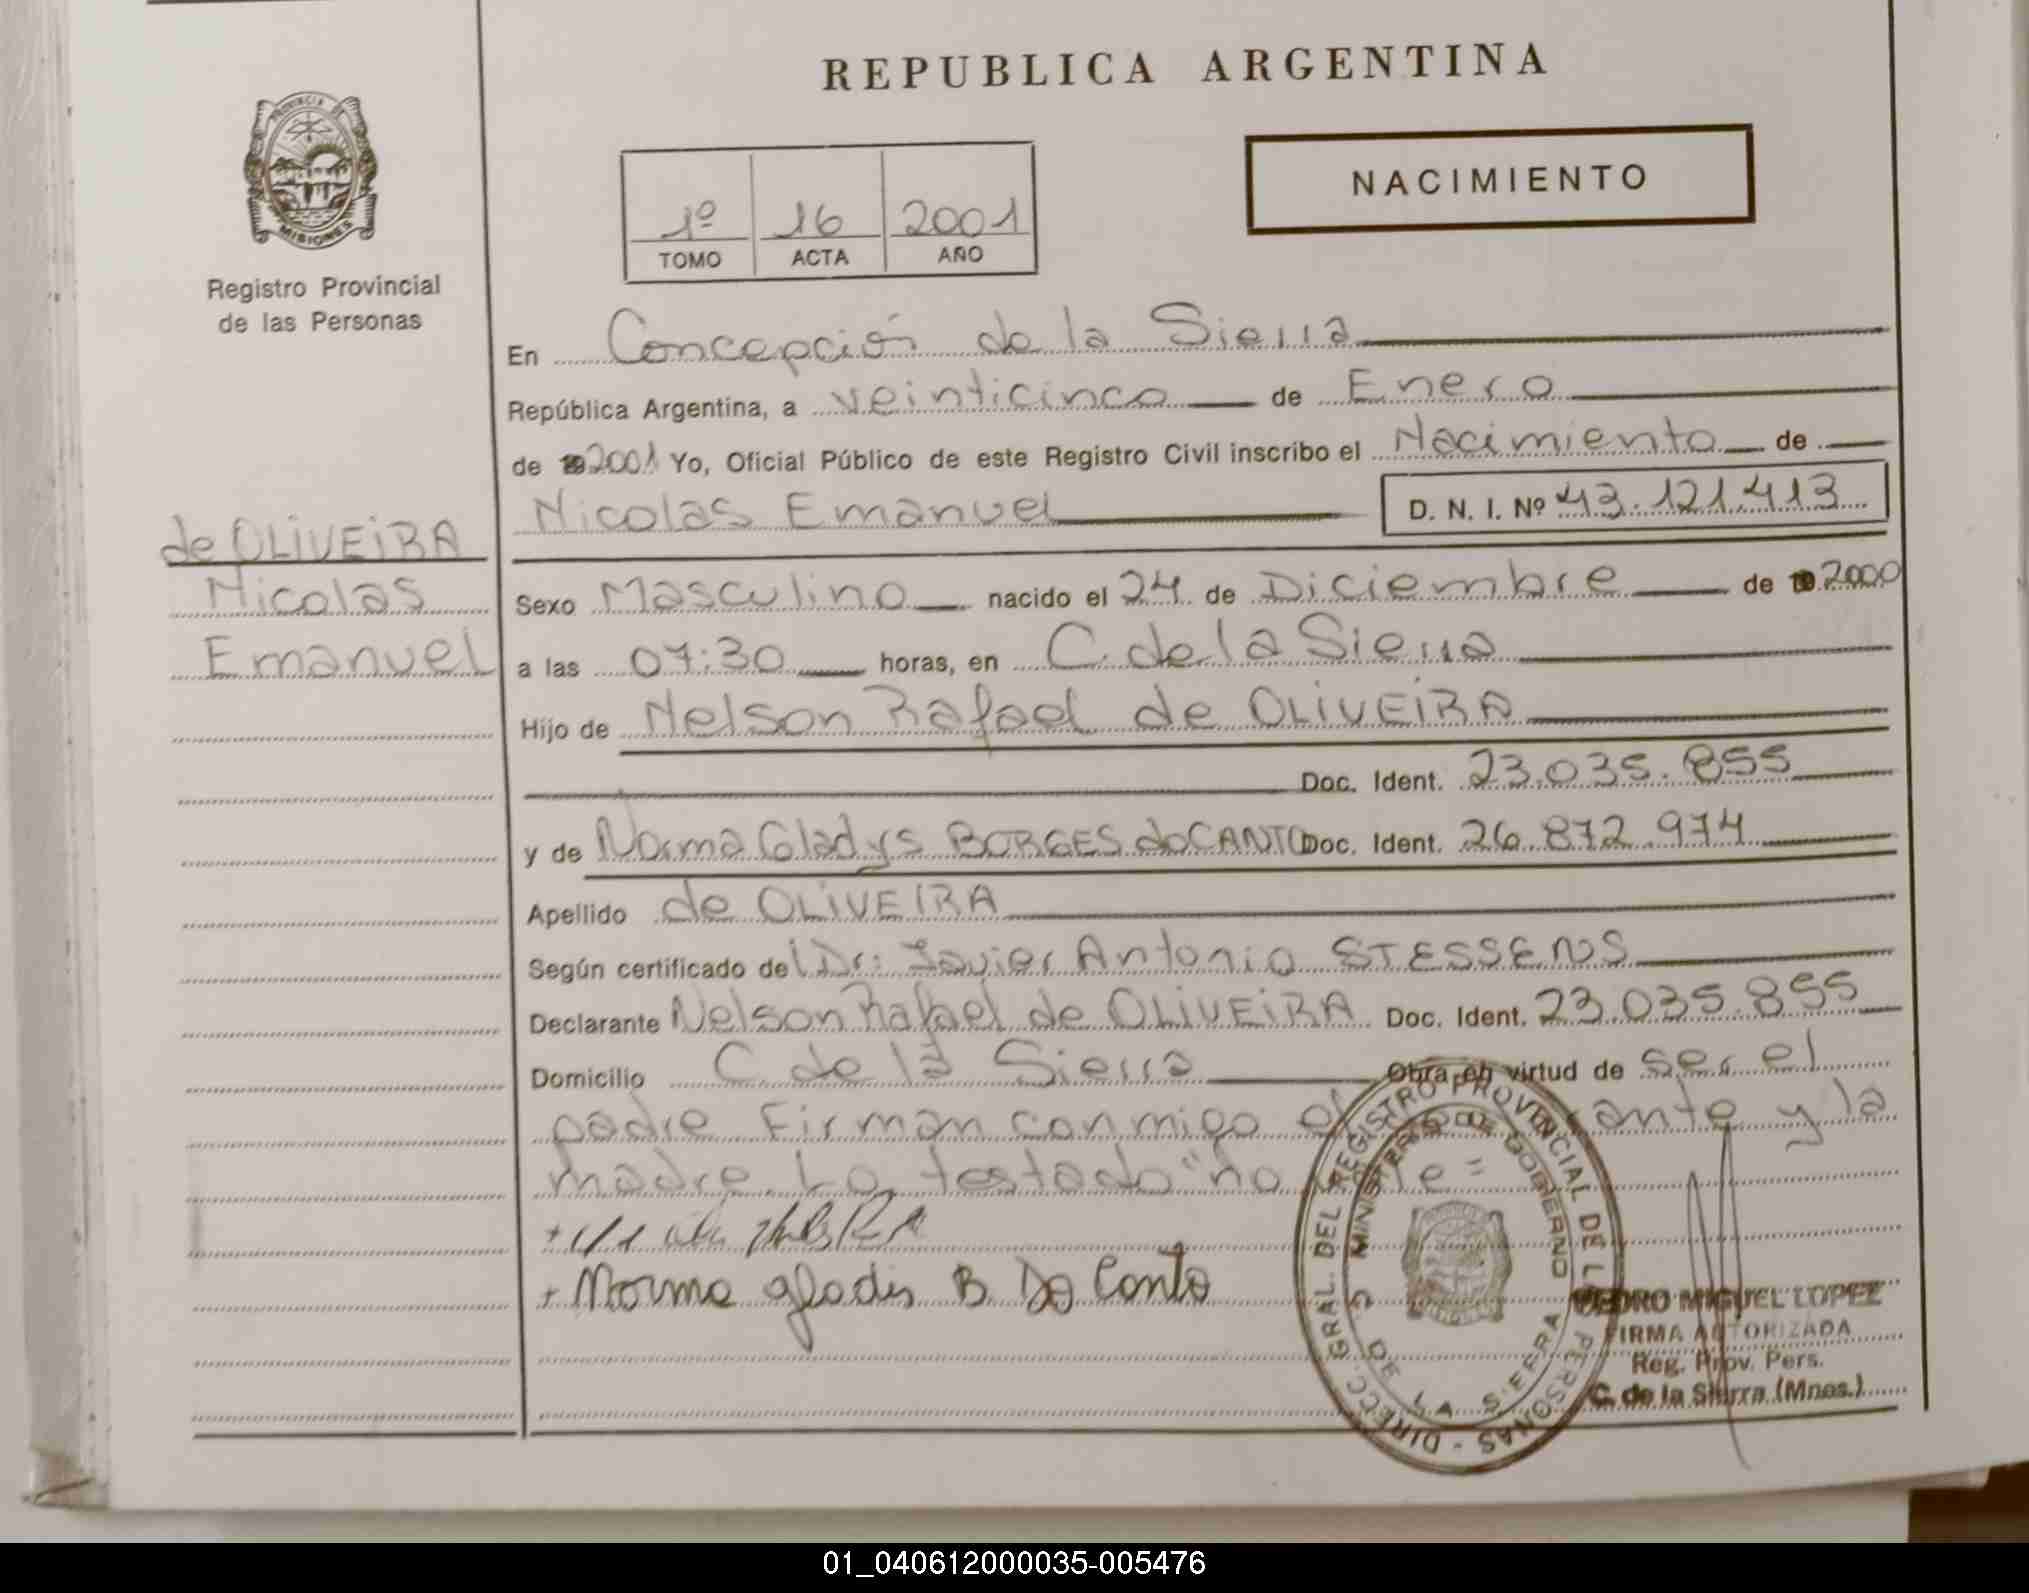 REPUBLICA ARGENTINA
PROVINCIA DE
MISIONES
Registro Provincial
de las Personas
1º 16 2001
TOMO ACTA AÑO
NACIMIENTO
En Concepción de la Sierra
República Argentina, a veinticinco de Enero
de 2001 Yo, Oficial Público de este Registro Civil inscribo el Nacimiento de
Nicolas Emanuel D. N. I. Nº 43.121.413
de OLIVEIRA
Nicolas
Emanuel
Sexo Masculino nacido el 24 de Diciembre de 2000
a las 07:30 horas, en C. de la Sierra
Hijo de Nelson Rafael de OLIVEIRA
Doc. Ident. 23.035.855
y de Norma Gladys BORGES doCANTO Doc. Ident. 26.872.974
Apellido de OLIVEIRA
Según certificado del Dr: Javier Antonio STESSENS
Declarante Nelson Rafael de OLIVEIRA Doc. Ident. 23.035.855
Domicilio C de la Sierra Obra en virtud de ser el
padre Firman conmigo el ante y la
madre. Lo testado "no
+ Norma gladis B Do Canto
DIRECC. GRAL. DEL REGISTRO PROVINCIAL DE LAS PERSONAS
MINISTERIO DE GOBIERNO
C. DE LA SIERRA
PEDRO MIGUEL LOPEZ
FIRMA AUTORIZADA
Reg. Prov. Pers.
C. de la Sierra (Mnes.)
01_040612000035-005476